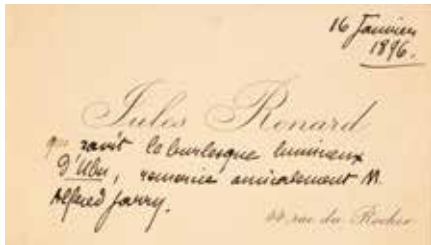 16 Janvier
1896.
Jules Renard
qui ravit le burlesque lumineux
D'Ubu, remercie amicalement M.
Alfred Jarry.
44, rue du Rocher